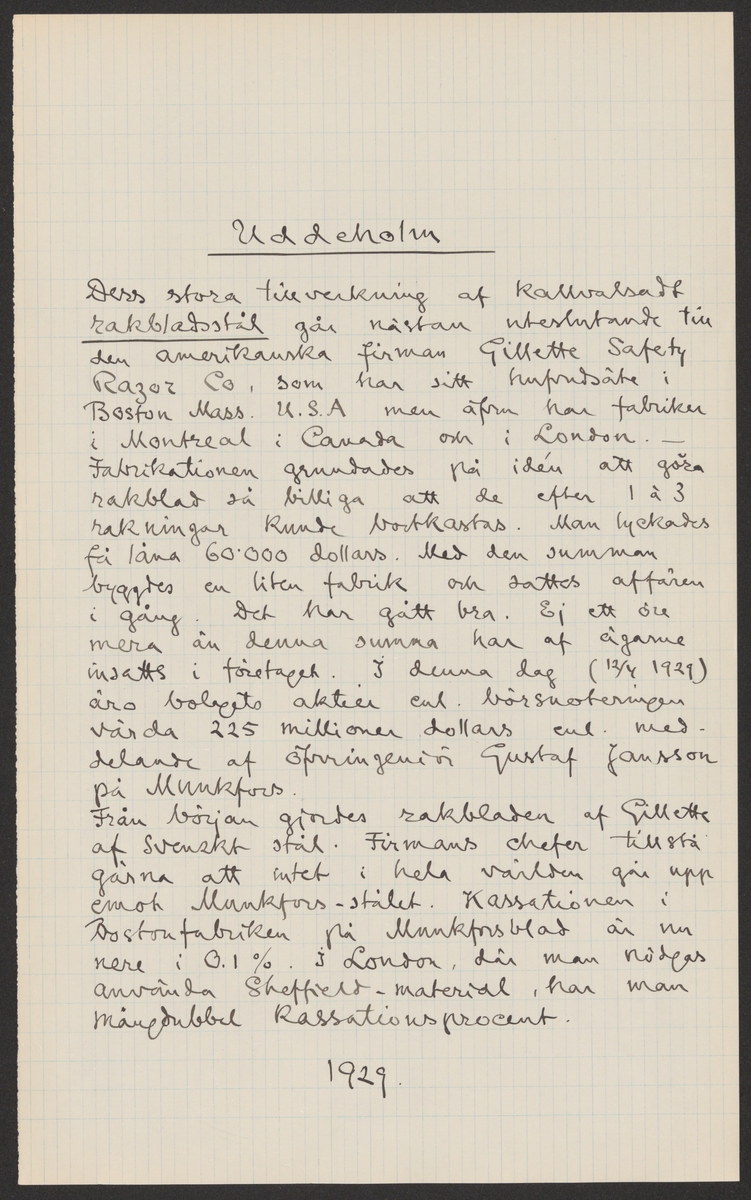 Uddeholm
Dess stora tillverkning af kallvalsadt
rakbladsstål går nästan uteslutande till
den amerikanska firman Gillette Safety
Razor Co, som har sitt hufvudsäte i
Boston Mass. U.S.A men äfven har fabriker
i Montreal i Canada och i London. —
Fabrikationen grundades på idén att göra
rakblad så billiga att de efter 1 à 3
rakningar kunde bortkastas. Man lyckades
få låna 60·000 dollars. Med den summan
byggdes en liten fabrik och sattes affären
i gång. Det har gått bra. Ej ett öre
mera än denna summa har af ägarne
insatts i företaget. I denna dag (12/4 1929)
äro bolagets aktier enl. börsnoteringen
värda 225 millioner dollars enl. med-
delande af öfveringeniör Gustaf Jansson
på Munkfors.
Från början gjordes rakbladen af Gillette
af Svenskt stål. Firmans chefer tillstå
gärna att intet i hela världen går upp
emot Munkfors-stålet. Kassationen i
Bostonfabriken på Munkforsblad är nu
nere i 0.1 %. I London, där man nödgas
använda Sheffield-material, har man
mångdubbel kassationsprocent.
1929.